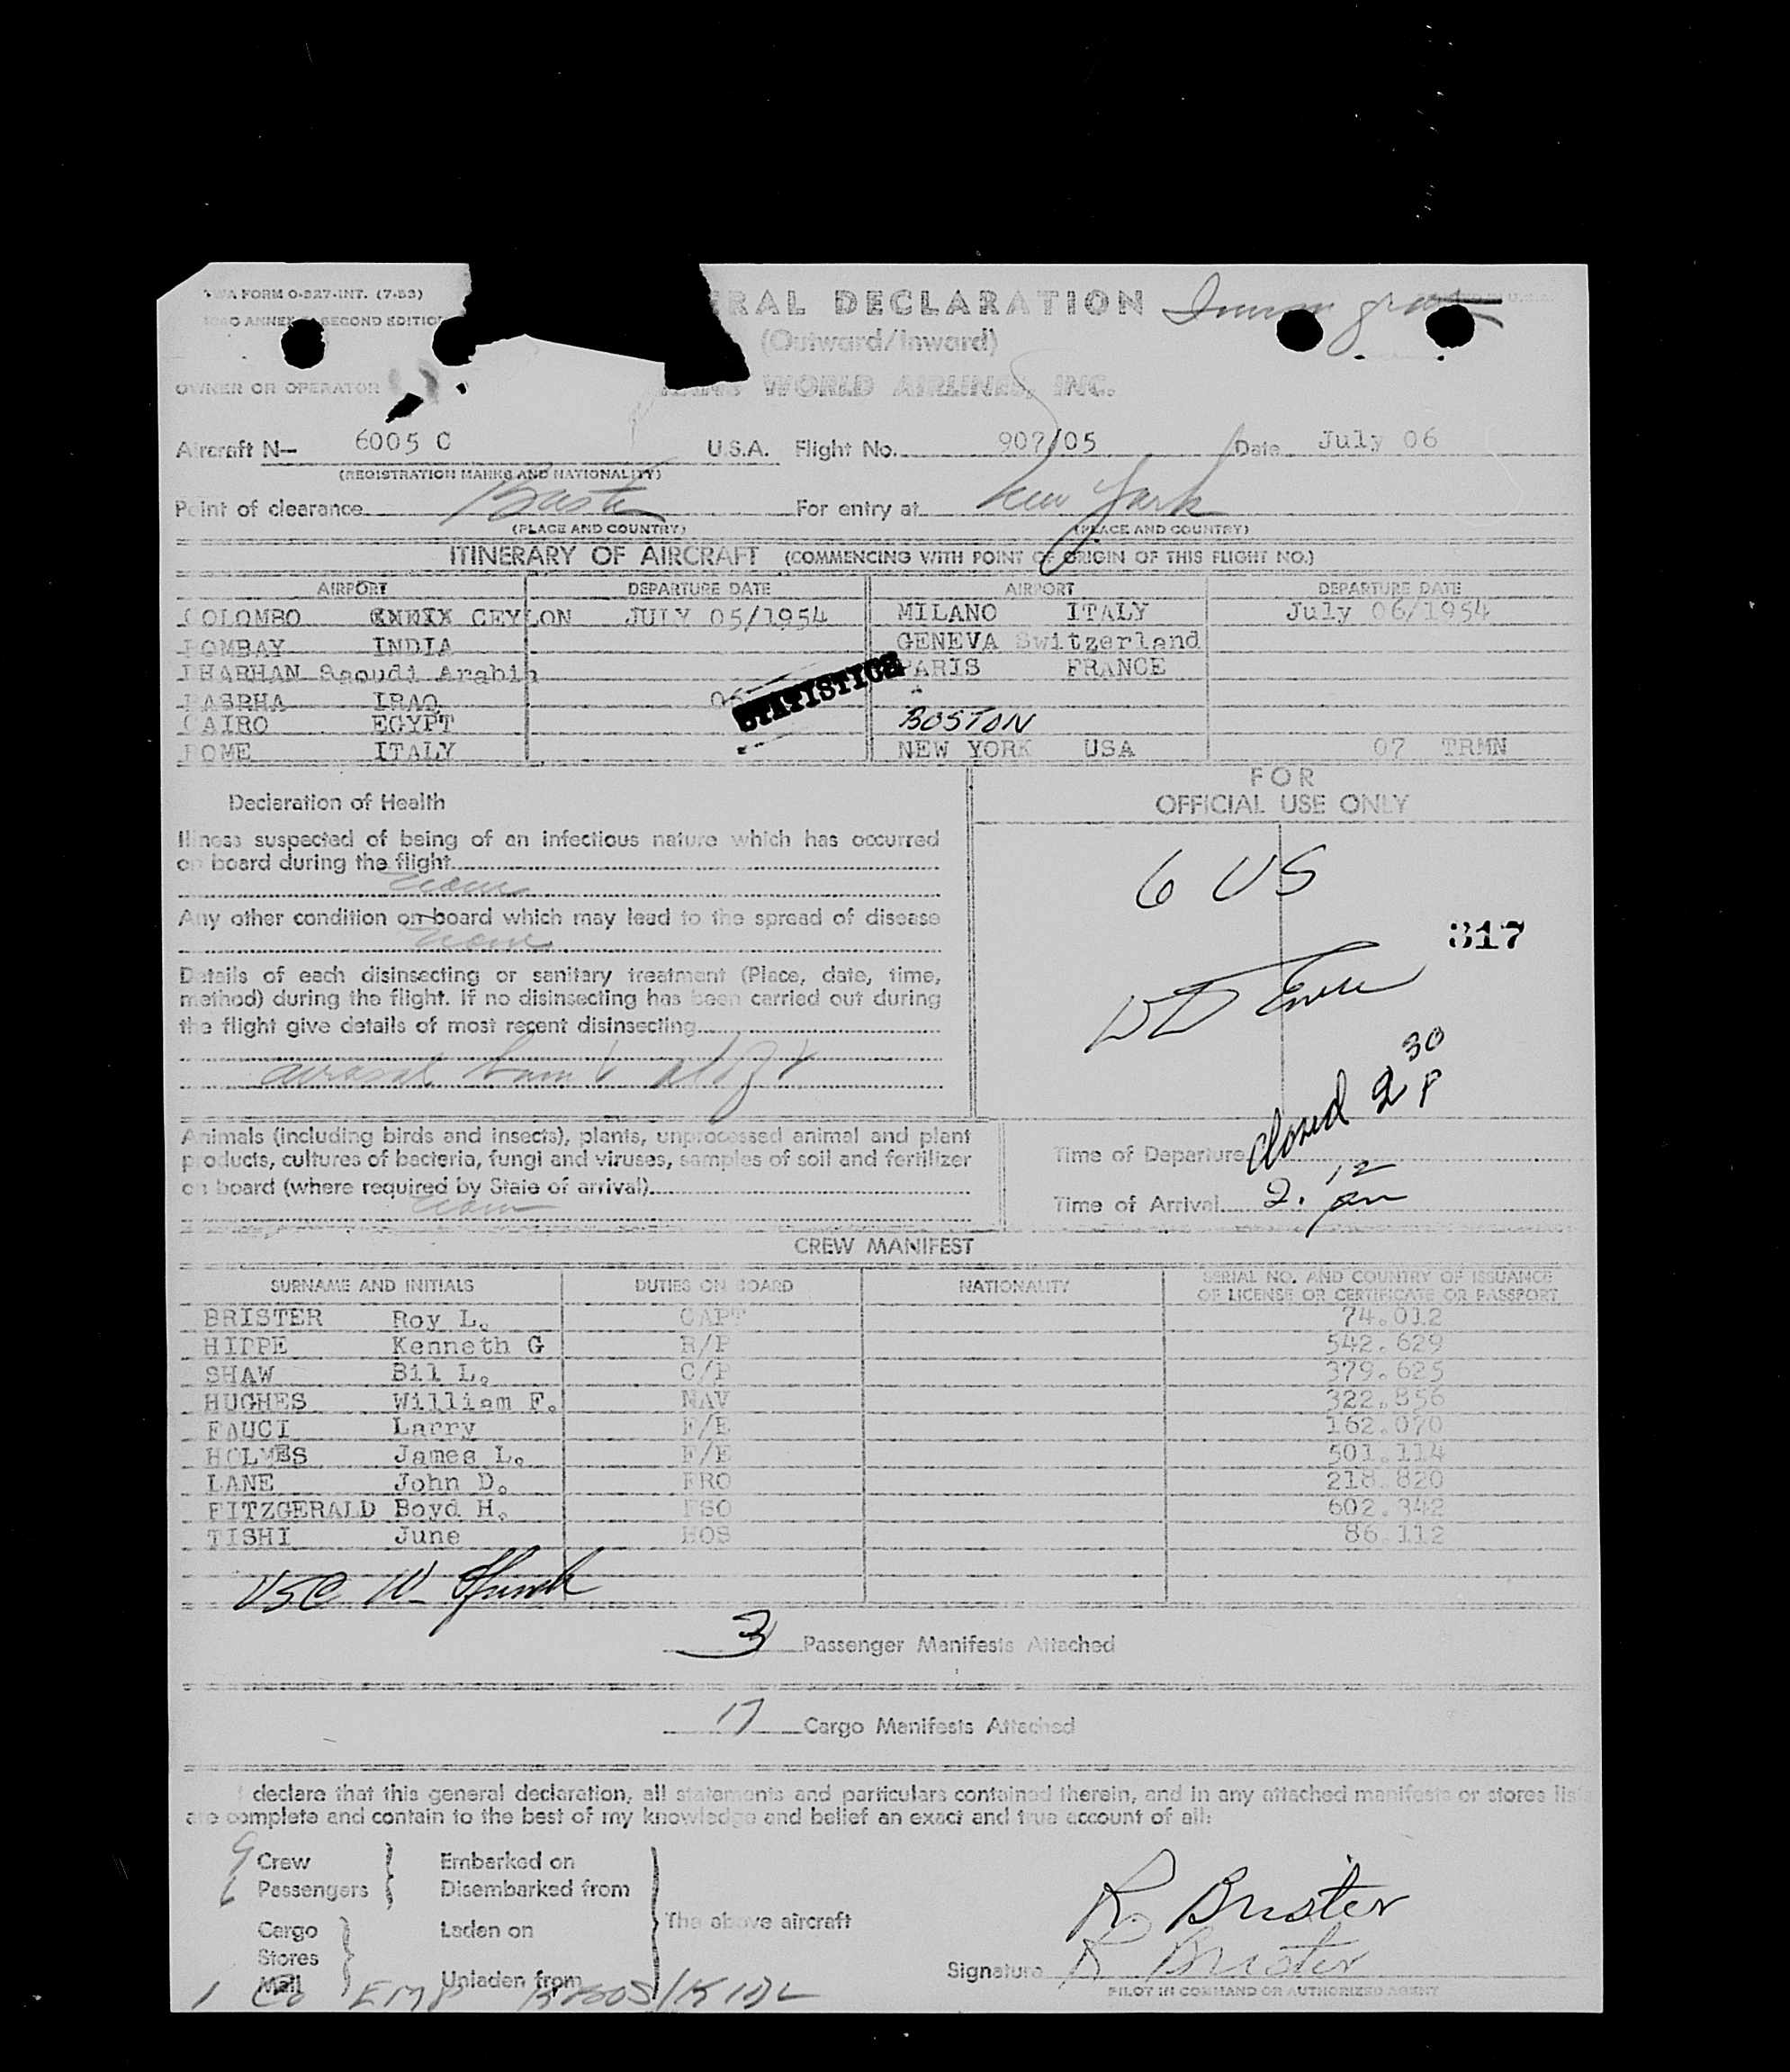 TWA FORM O-827-INT. (7-53)
ANNEX SECOND EDITION
RAL DECLARATION
(Outward/Inward)
OWNER OR OPERATOR
TRANS WORLD AIRLINES, INC.
Aircraft N— 6005 C U.S.A. Flight No. 907/05 Date July 06
(REGISTRATION MARKS AND NATIONALITY)
Point of clearance For entry at New York
(PLACE AND COUNTRY) (PLACE AND COUNTRY)
ITINERARY OF AIRCRAFT (COMMENCING WITH POINT OF ORIGIN OF THIS FLIGHT NO.)
AIRPORT DEPARTURE DATE AIRPORT DEPARTURE DATE
COLOMBO CEYLON JULY 05/1954 MILANO ITALY July 06/1954
BOMBAY INDIA GENEVA Switzerland
DHARHAN Saoudi Arabia PARIS FRANCE
BASRHA IRAQ 06
STATISTICS
CAIRO EGYPT BOSTON
ROME ITALY NEW YORK USA 07 TRMN
Declaration of Health
FOR
OFFICIAL USE ONLY
Illness suspected of being of an infectious nature which has occurred
on board during the flight
none
Any other condition on board which may lead to the spread of disease
none
Details of each disinsecting or sanitary treatment (Place, date, time,
method) during the flight. If no disinsecting has been carried out during
the flight give details of most recent disinsecting
6 US
317
closed 2 30 P
Animals (including birds and insects), plants, unprocessed animal and plant
products, cultures of bacteria, fungi and viruses, samples of soil and fertilizer
on board (where required by State of arrival)
none
Time of Departure
Time of Arrival 2. 12 pm
CREW MANIFEST
SURNAME AND INITIALS DUTIES ON BOARD NATIONALITY SERIAL NO. AND COUNTRY OF ISSUANCE
OF LICENSE OR CERTIFICATE OR PASSPORT
BRISTER Roy L. CAPT 74.012
HIPPE Kenneth G R/P 542.629
SHAW Bil L. C/P 379.625
HUGHES William F. NAV 322.856
FAUCI Larry F/E 162.070
HOLMES James L. F/E 501.114
LANE John D. FRO 218.820
FITZGERALD Boyd H. FSO 602.342
TISHI June HOS 86.112
USC W
3 Passenger Manifests Attached
17 Cargo Manifests Attached
I declare that this general declaration, all statements and particulars contained therein, and in any attached manifests or stores list
are complete and contain to the best of my knowledge and belief an exact and true account of all:
9 Crew Embarked on
6 Passengers Disembarked from
The above aircraft
Cargo Laden on
Stores
Mail Unladen from
R. Brister
Signature R Brister
PILOT IN COMMAND OR AUTHORIZED AGENT
1 Co EMP